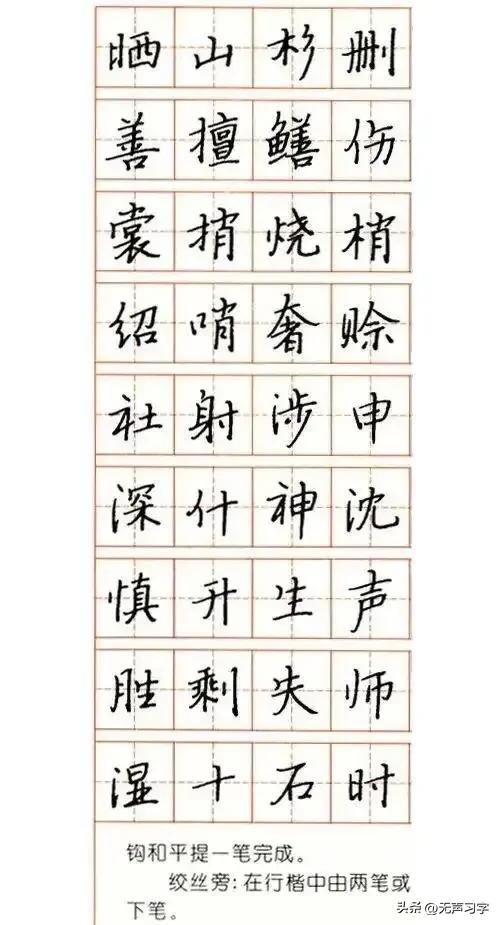 晒山杉删
善擅鳝伤
裳捎烧梢
绍哨奢赊
社射涉申
深什神沈
慎升生声
胜剩失师
湿十石时
钩和平提一笔完成。
绞丝旁:在行楷中由两笔或
下笔。
头条@无声习字